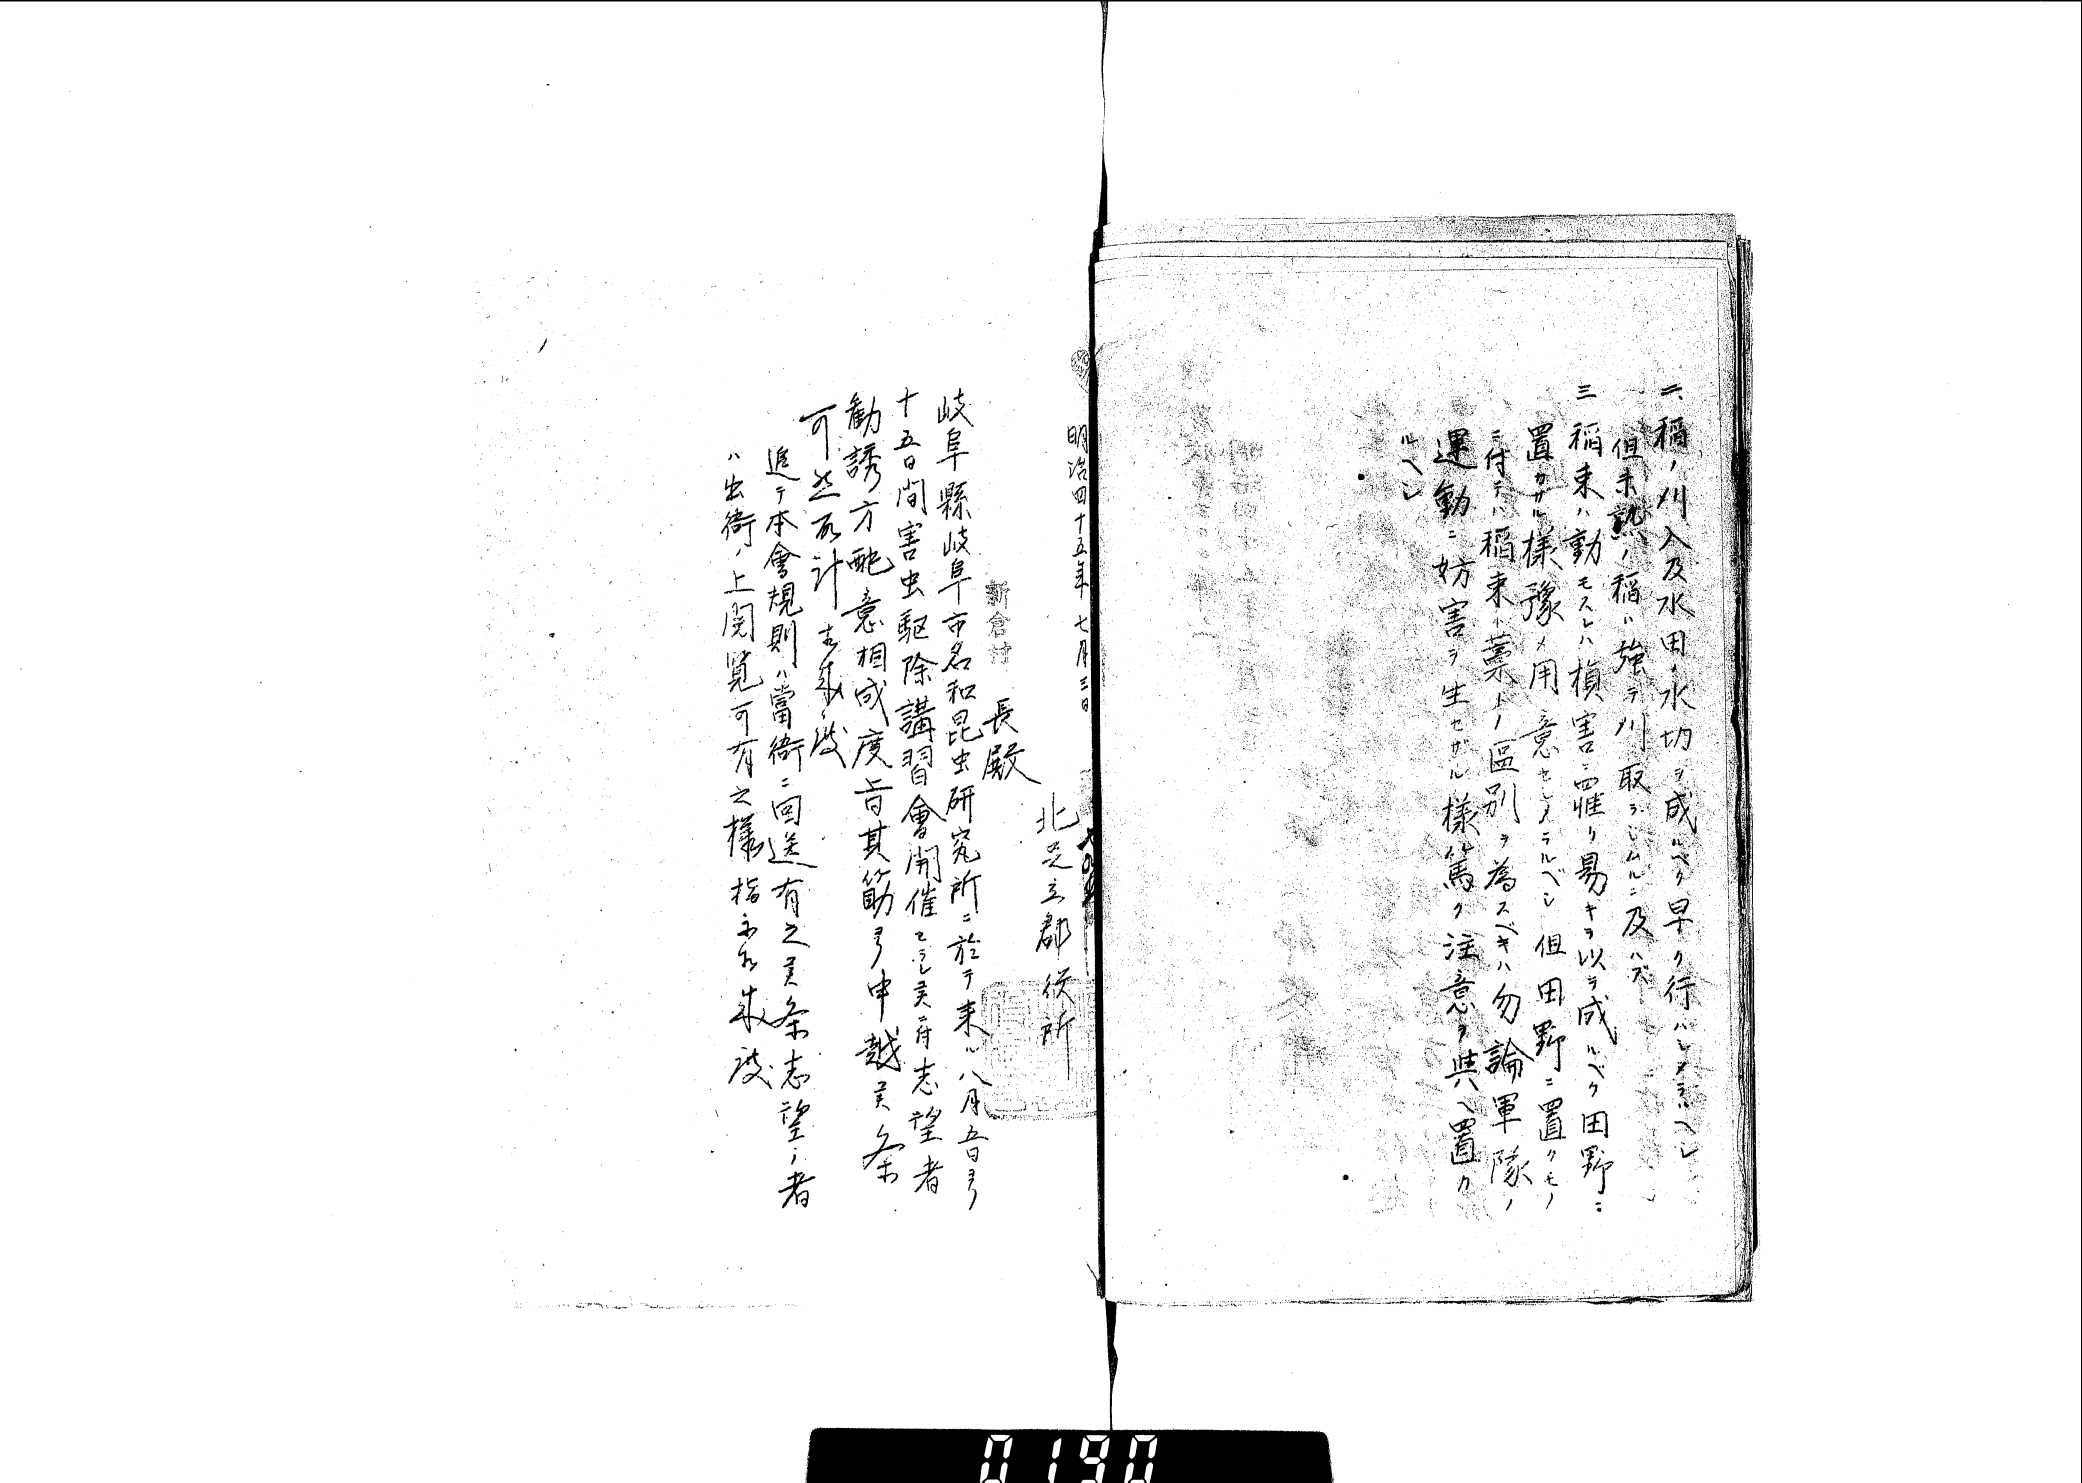 二、稲ノ刈入及水田ノ水切ヲ成ルベク早ク行ハシメラルヘシ
但未熟ノ稲ハ強テ刈取ラシムルニ及ハズ
三 稲束ハ動モスレハ損害ニ罹リ易キヲ以テ成ルベク田野ニ
置カザル様豫メ用意セシメラルベシ但田野ニ置クモノ
ニ付テハ稲束ト藁トノ區別ヲ為スベキハ勿論軍隊ノ
運動ニ妨害ヲ生セザル様篤ク注意ヲ與ヘ置カ
ルヘシ
明治四十五年七月三日
北足立郡役所
新倉村長殿
岐阜縣岐阜市名和昆虫研究所ニ於テ来ル八月五日ヨリ
十五日間害虫駆除講習會開催セラレ候ニ付志望者
勧誘方配意相成度旨其筋ヨリ申越候条
可然取計相成度
追テ本會規則ハ當衙ニ回送有之候条志望ノ者
ハ出衙ノ上閲覧可有之様指示相成度
0190